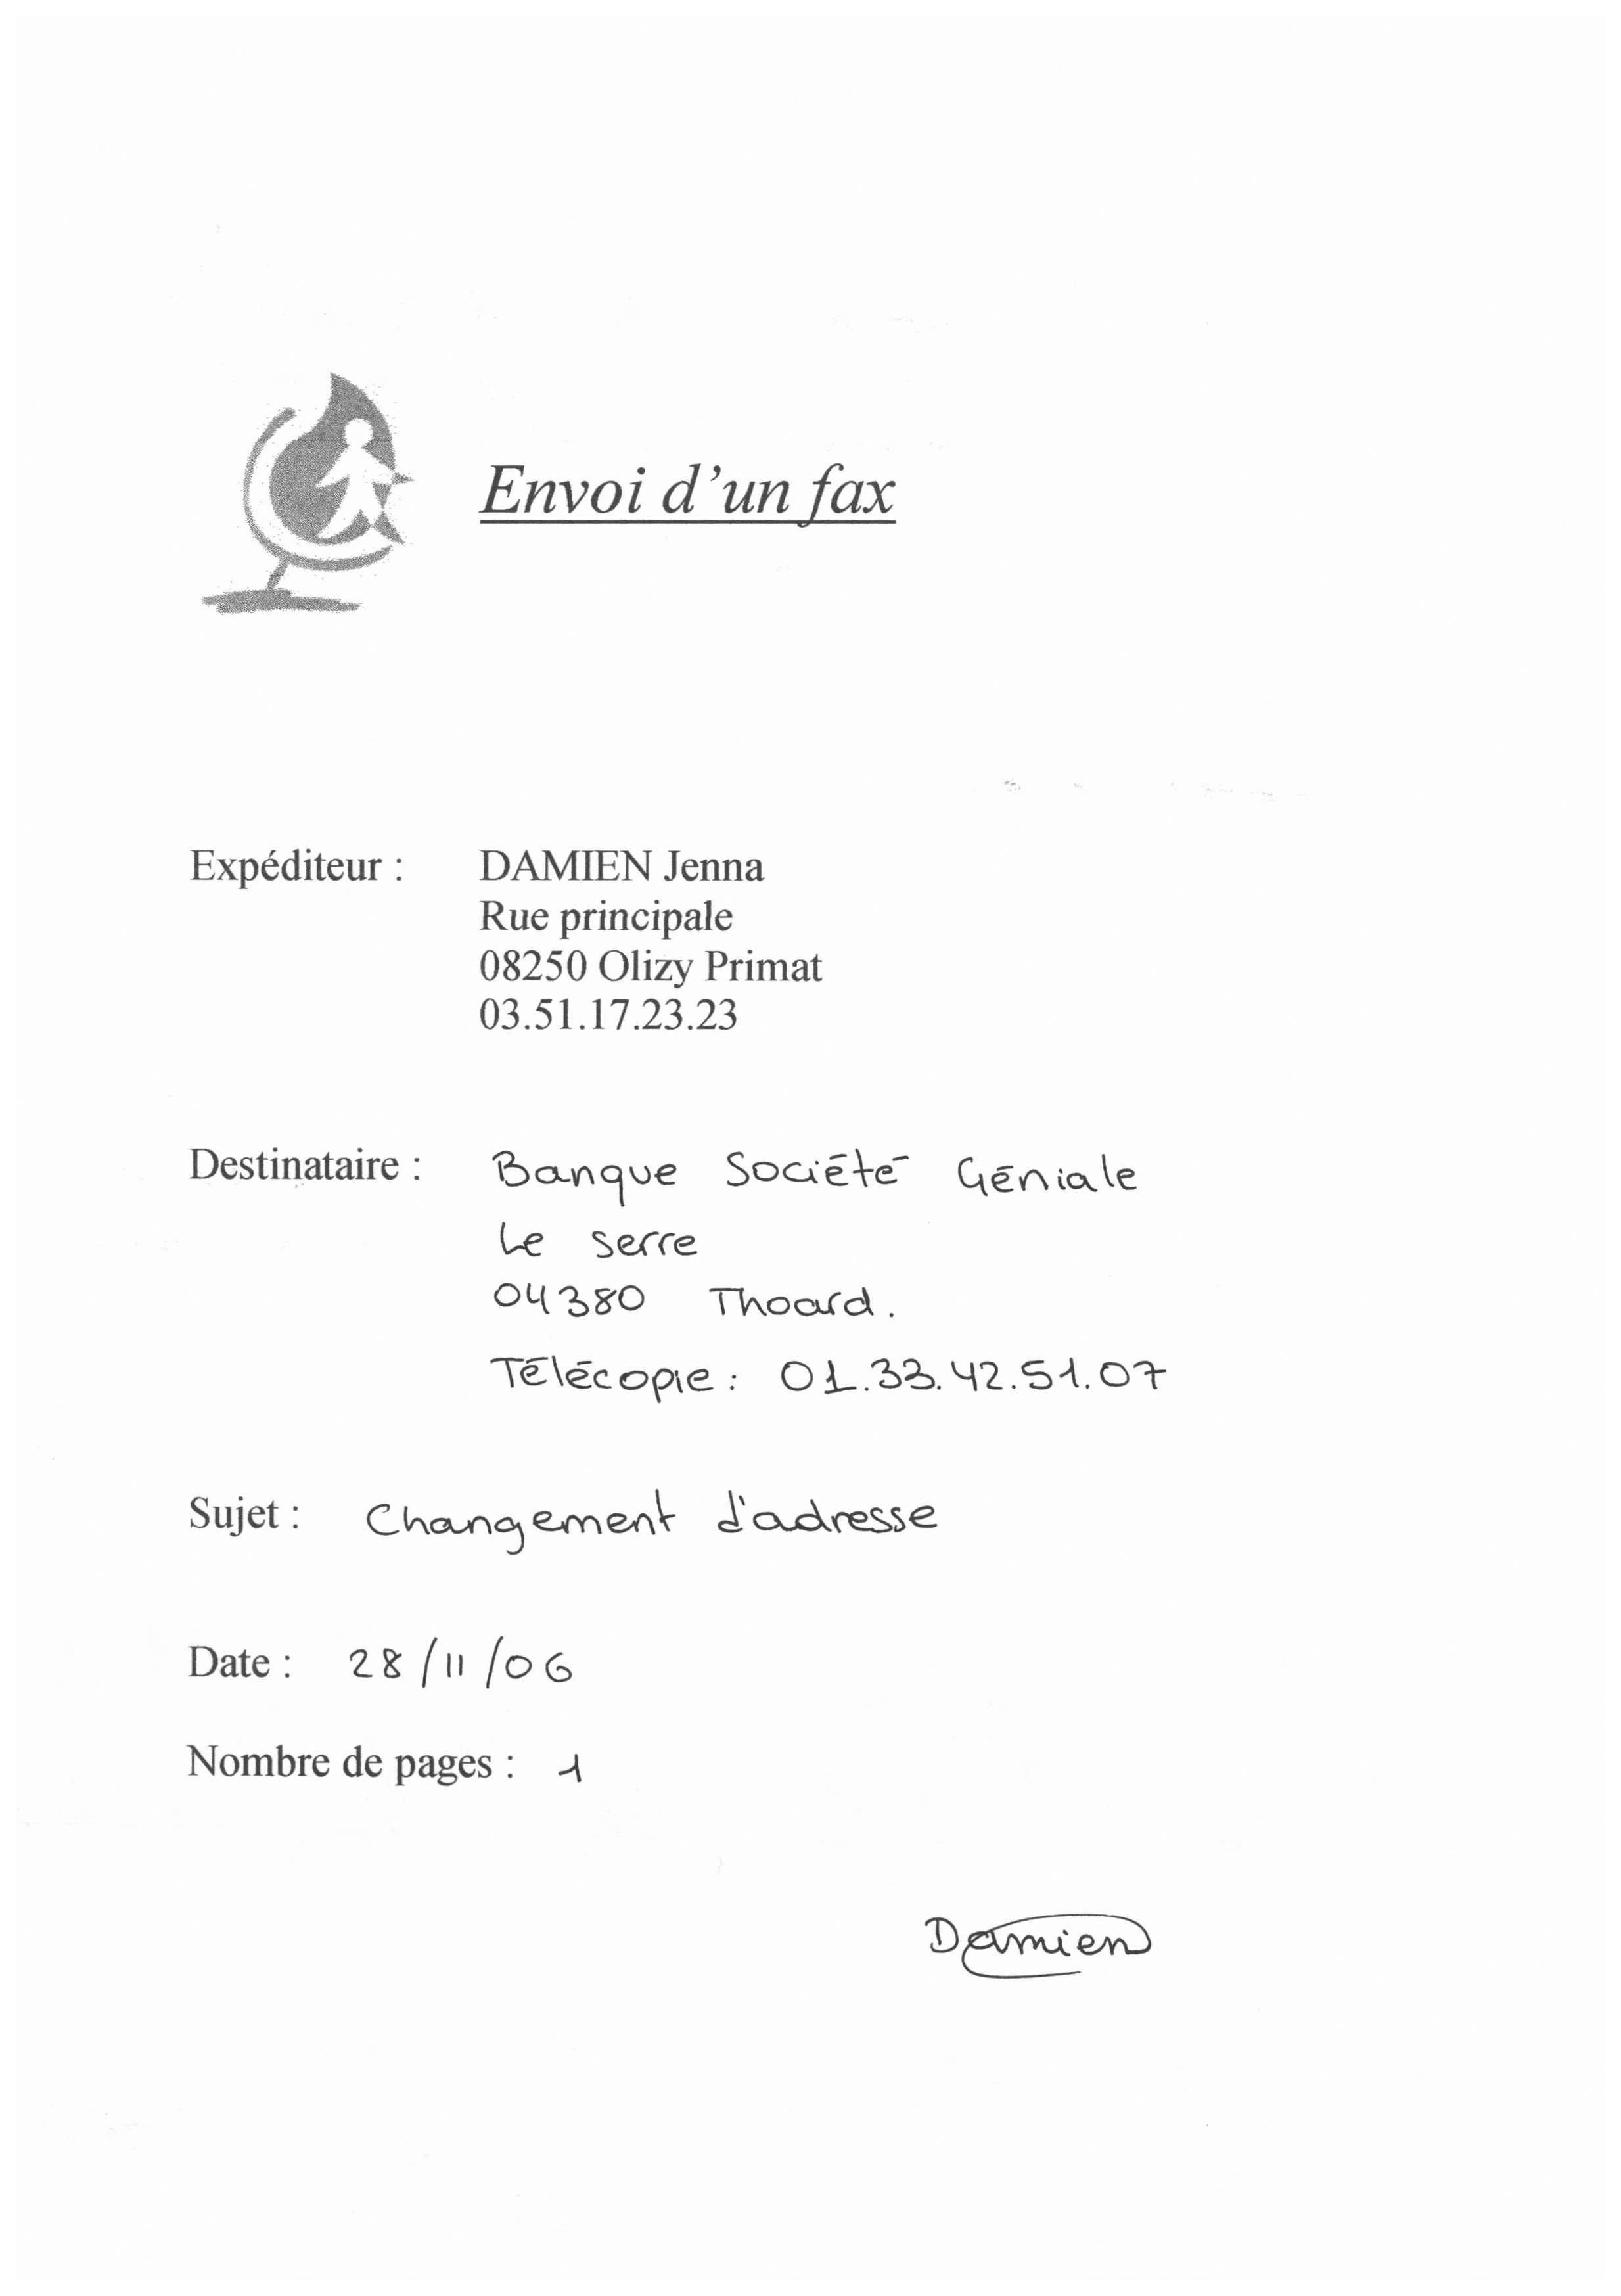 Envoi d'un fax
Expéditeur : DAMIEN Jenna
Rue principale
08250 Olizy Primat
03.51.17.23.23
Destinataire : Banque Société Géniale
Le serre
04380 Thoard.
Télécopie : 01.33.42.51.07
Sujet : Changement d'adresse
Date : 28/11/06
Nombre de pages : 1
Damien